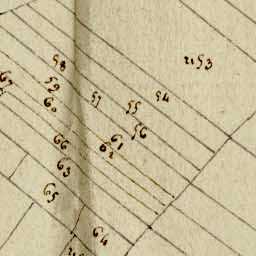 58
53
59
57
54
60
55
56
61
62
66
63
65
64